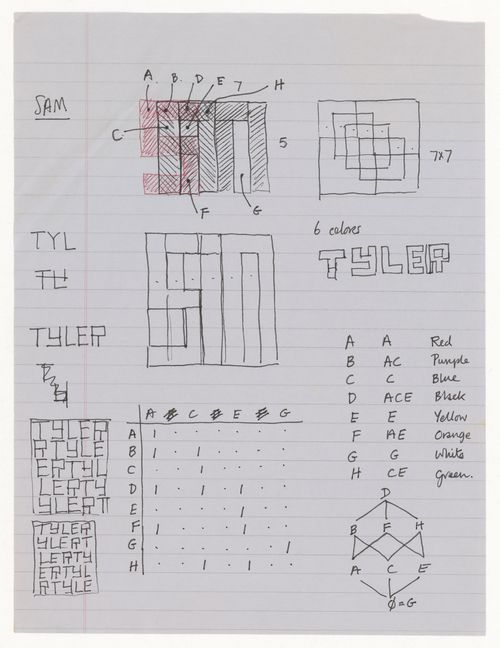 A. B. D E 7 H
SAM
C
5
7x7
F G
6 colores
TYL
TYLER
TYL
TYLER
A A Red
B AC Purple
C C Blue
D ACE Black
E E Yellow
F AE Orange
G G White
H CE Green.
A C E G
A 1 . . . . . .
B 1 . 1 . . . .
C . . 1 . . . .
D 1 . 1 . 1 . .
E . . . . 1 . .
F 1 . . . 1 . .
G . . . . . . 1
H . . 1 . 1 . .
TYLER
RTYLE
ERTYL
LERTY
YLERT
TYLER
YLERT
LERTY
ERTYL
RTYLE
D
B F H
A C E
Ø = G